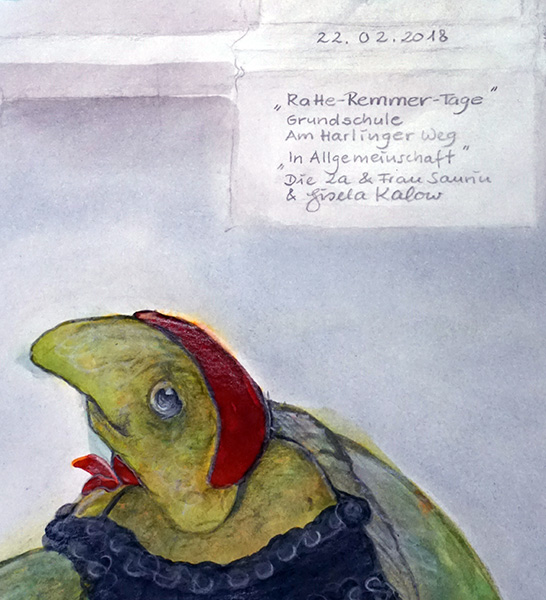 22.02.2018
„RaHe-Remmer-Tage"
Grundschule
Am Harlinger Weg
„In Allgemeinschaft"
Die 2a & Frau Saurin
& Gisela Kalow